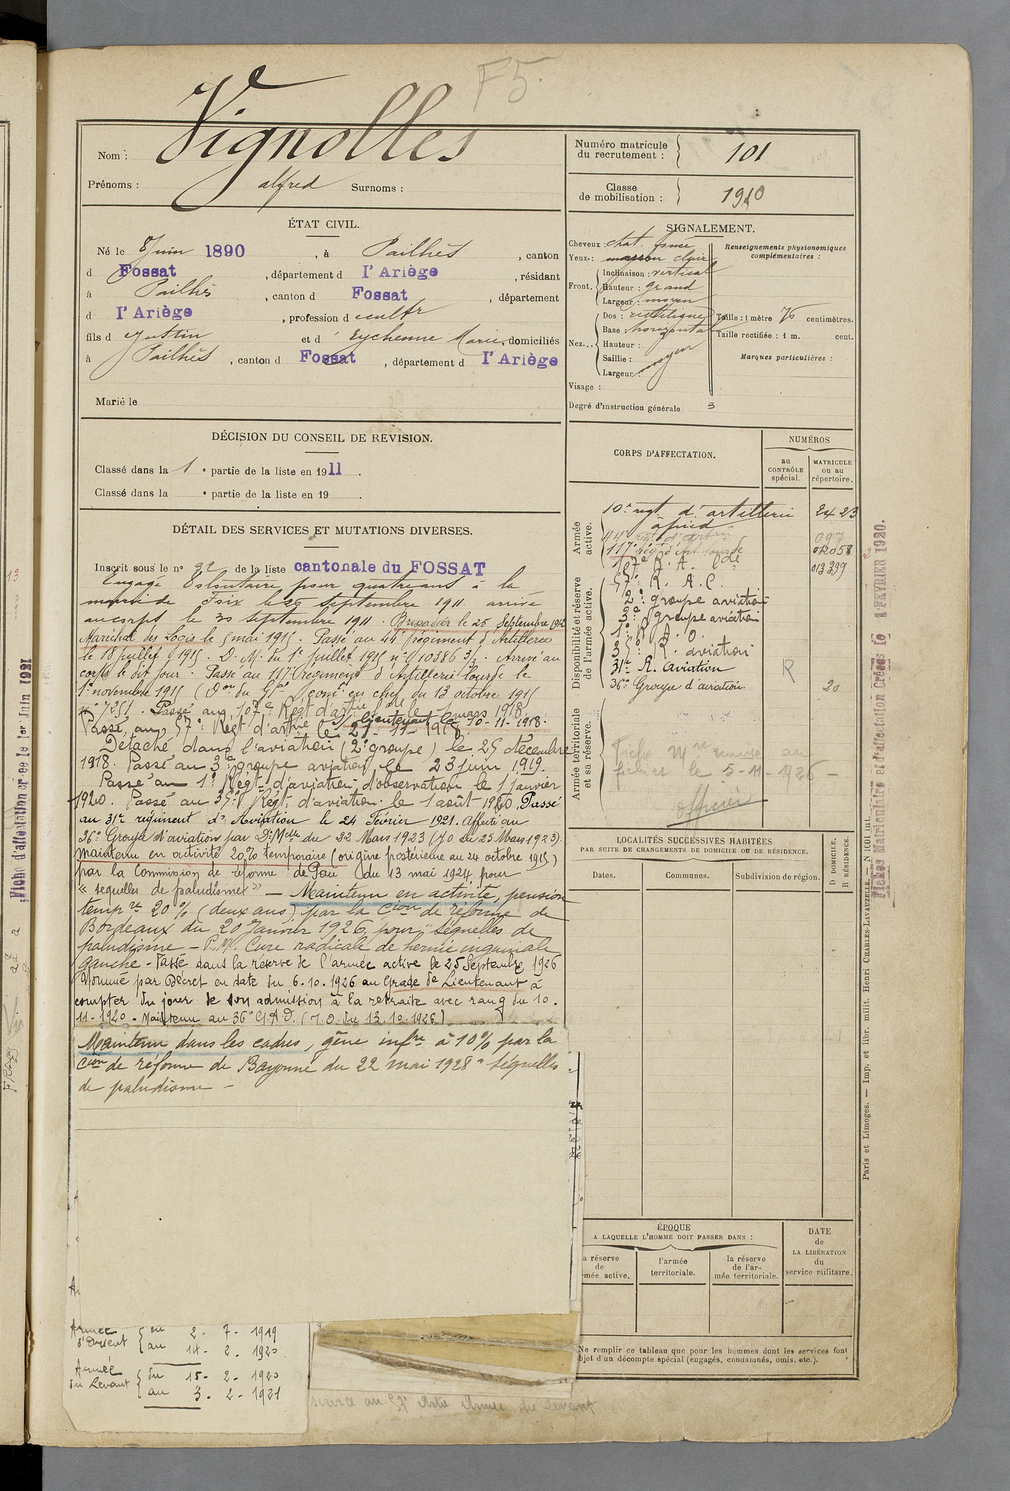 F5.
Nom : Vignolles
Prénoms : alfred Surnoms :
ÉTAT CIVIL.
Né le 8 Juin 1890, à Pailhès, canton
d Fossat, département d l'Ariège, résidant
à Pailhès, canton d Fossat, département
d l'Ariège, profession d cultr
fils d Justin et d Eychenne Marie, domiciliés
à Pailhès, canton d Fossat, département d l'Ariège
Marié le
DÉCISION DU CONSEIL DE REVISION.
Classé dans la 1e partie de la liste en 1911.
Classé dans la e partie de la liste en 19
DÉTAIL DES SERVICES ET MUTATIONS DIVERSES.
Inscrit sous le no 92 de la liste cantonale du FOSSAT
Engagé Volontaire pour quatre ans à la
mairie de Foix le 29 septembre 1911. arrivé
au corps le 30 septembre 1911. Brigadier le 26 Septembre 1912
Maréchal des Logis le 1 mai 1915. Passé au 44e régiment d'Artillerie
le 18 juillet 1915. D. M. du 1er Juillet 1915 no 10386 3/3. Arrivé au
corps le dit jour. Passé au 117e régiment d'Artillerie lourde le
1er novembre 1915 (Don du Gal comt en chef du 13 octobre 1915
no 7251. Passé au 107e Regt d'artie le 1 mars 1918.
Passé au 57e Regt d'artie le 21-11-1918. s/lieutenant le 10-11-1918.
Détaché dans l'aviation (2e groupe) le 25 décembre
1918. Passé au 3e groupe aviation le 23 juin 1919.
Passé au 1e Régt d'aviation d'observation le 1 Janvier
1920. Passé au 35e Régt d'aviation le 1 août 1920. Passé
au 31e régiment d'Aviation le 24 Février 1921. Affecté au
36e Groupe d'aviation par Dn Melle du 22 Mars 1923 (JO du 25 Mars 1923).
Maintenu en activité 20% temporaire (origine postérieure au 24 octobre 1915)
par la Commission de réforme de Pau du 13 mai 1924 pour
"séquelles de paludisme" — Maintenu en activité, pension
tempre 20% (deux ans) par la Cion de réforme de
Bordeaux du 20 Janvier 1926 pour: séquelles de
paludisme - Cure radicale de hernie inguinale
gauche - Passé dans la réserve de l'armée active le 25 Septembre 1926
Nommé par Décret en date du 6.10.1926 au Grade de Lieutenant à
compter du jour de son admission à la retraite avec rang du 10.
11-1920 - Maintenu au 36e G.A.O. (J.O. du 13.10.1926)
Maintenu dans les cadres, gêne infre à 10% par la
Cion de réforme de Bayonne du 22 mai 1928 "séquelles
de paludisme -
Armée d'Orient { du 2.-7-1919
au 14.-2.1920
Armée du Levant { du 15-2-1920
au 3.-2-1921
service au 57 Artie Armée du Levant
Numéro matricule du recrutement : 101
Classe de mobilisation : 1910
SIGNALEMENT.
Cheveux : chat. foncé
Yeux : marron clair
Front. Inclinaison : vertical
Hauteur : grand
Largeur : moyen
Nez... Dos : rectiligne
Base : horizontal
Hauteur :
Saillie : moyen
Largeur :
Visage :
Degré d'instruction générale 3
Renseignements physionomiques complémentaires :
Taille : 1 mètre 70 centimètres.
Taille rectifiée : 1 m. cent.
Marques particulières :
CORPS D'AFFECTATION.
NUMÉROS
au CONTRÔLE spécial.
MATRICULE ou au répertoire.
Armée active.
10e regt d'artillerie à pied 2423
44e regt d'artie 097
117e Rég. d'Art. lourde 02058
107e R. A. Lde 013399
Disponibilité et réserve de l'armée active.
57e R. A. C.
2e groupe aviation
3e groupe aviation
1e R A. O.
35e R. aviation
31e R. Aviation R
36e Groupe d'aviation 20
Armée territoriale et sa réserve.
Fiche Mle remise au
fichier le 5-11-1926 -
officier
LOCALITÉS SUCCESSIVES HABITÉES
PAR SUITE DE CHANGEMENTS DE DOMICILE OU DE RÉSIDENCE.
Dates. Communes. Subdivision de région. D DOMICILE. R RÉSIDENCE.
ÉPOQUE
A LAQUELLE L'HOMME DOIT PASSER DANS :
DATE de LA LIBÉRATION du service militaire.
la réserve de l'armée active. l'armée territoriale. la réserve de l'armée territoriale.
Ne remplir ce tableau que pour les hommes dont les services font
objet d'un décompte spécial (engagés, condamnés, omis, etc.).
Fiches Matriculaire et d'affectation Créées le 1 FÉVRIER 1920.
Paris et Limoges. — Imp. et libr. milit. Henri CHARLES-LAVAUZELLE.
Fiche d'affectation créée le 1er Juin 1921